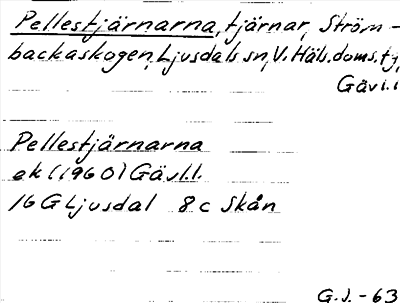 Pellestjärnarna, tjärnar, Ström-
backaskogen, Ljusdals sn, V. Häls. doms. tj,
Gävl. l
Pellestjärnarna
ek (1960) Gävl. l.
16 G Ljusdal 8 c Skån
G.J. - 63